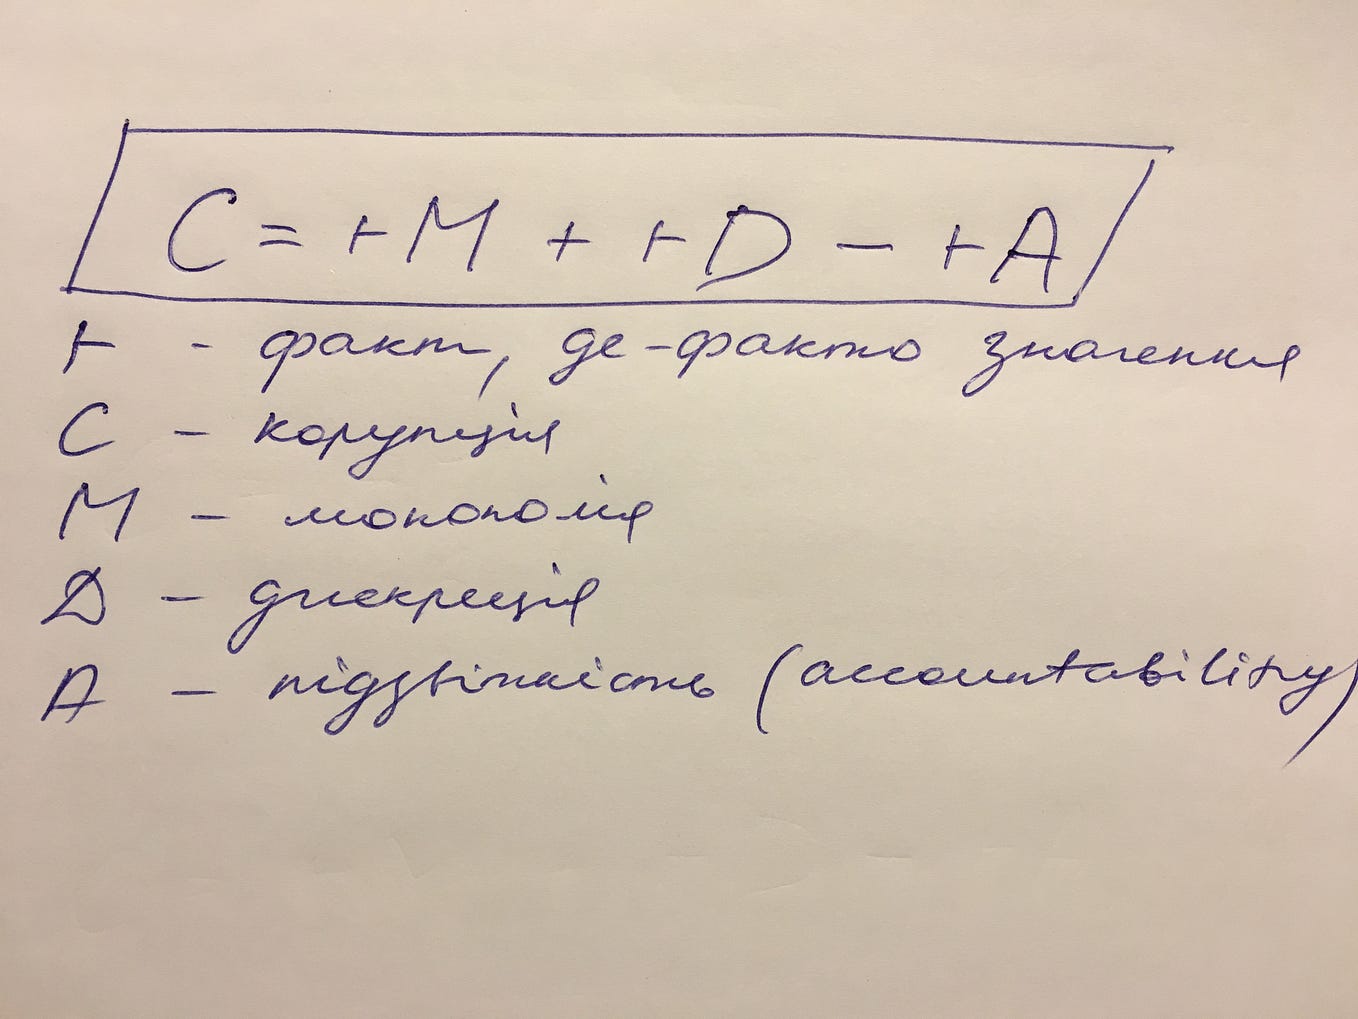 C = ⊢M + ⊢D − ⊢A
⊢ - факт, де-факто значення
C – корупція
M – монополія
D – дискреція
A – підзвітність (accountability)